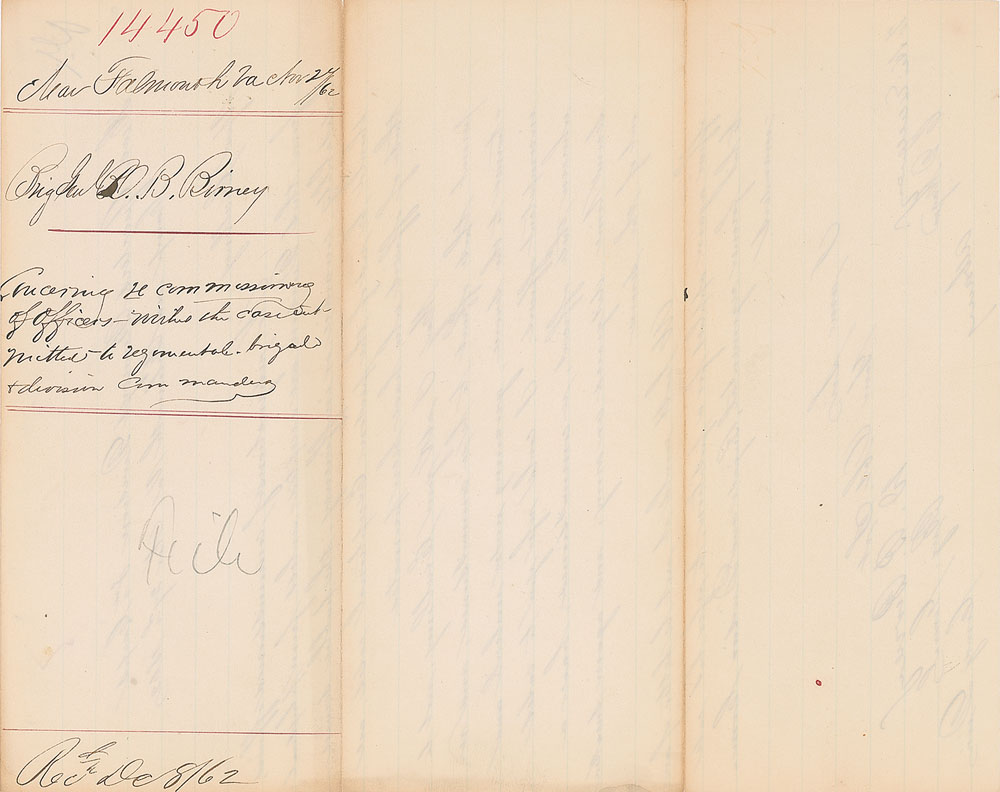 14450
Near Falmouth Va Nov 24/62
Brig Genl D. B. Birney
Concerning re commissioning
of Officers – wishes the case sub-
mitted to regimental. brigade
+ division Commanders
File
Recd Dec 8/62